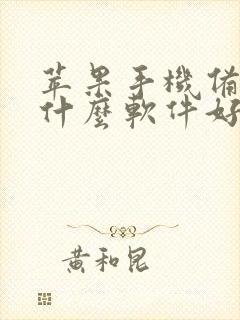 苹果手機備
什麼軟件好
黄和昆